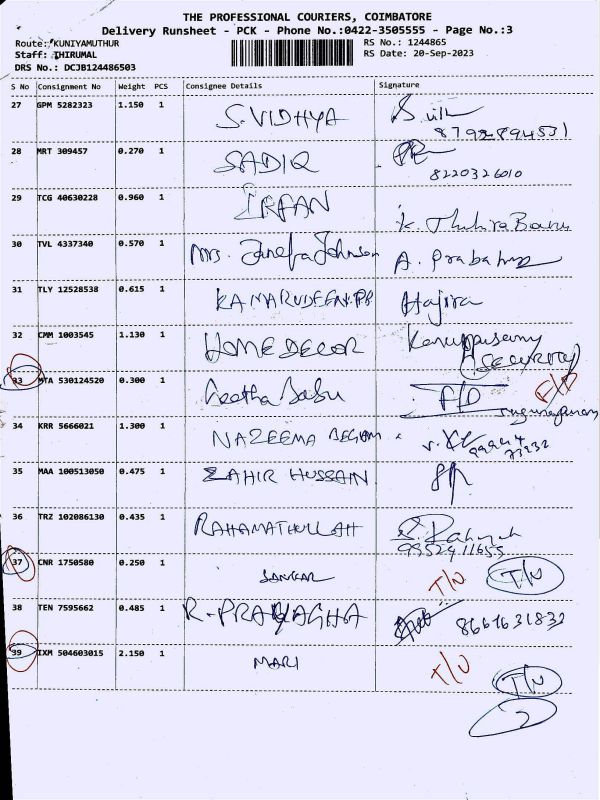 THE PROFESSIONAL COURIERS, COIMBATORE
Delivery Runsheet - PCK - Phone No.:0422-3505555 - Page No.:3
Route: KUNIYAMUTHUR RS No.: 1244865
Staff: THIRUMAL RS Date: 20-Sep-2023
DRS No.: DCJB124486503
S No Consignment No Weight PCS Consignee Details Signature
27 GPM 5282323 1.150 1 S.VIDHYA
28 MRT 309457 0.270 1 SADIQ
8220326010
29 TCG 40630228 0.960 1 IRFAN
30 TVL 4337340 0.570 1 Mrs. Johnson A.
31 TLY 12528538 0.615 1 KAMARUDEEN.PP Hajira
32 CMM 1003545 1.130 1 HOME DECOR
33 MTA 530124520 0.300 1 Geetha Babu F/D F/D
34 KRR 5666021 1.300 1 NAZEEMA BEGAM
35 MAA 100513050 0.475 1 ZAHIR HUSSAIN
36 TRZ 102086130 0.435 1 RAHAMATHULLAH
9952911655
37 CNR 1750580 0.250 1 SANKAR T/U T/U
38 TEN 7595662 0.485 1
39 IXM 504603015 2.150 1 MARI T/U T/U
2